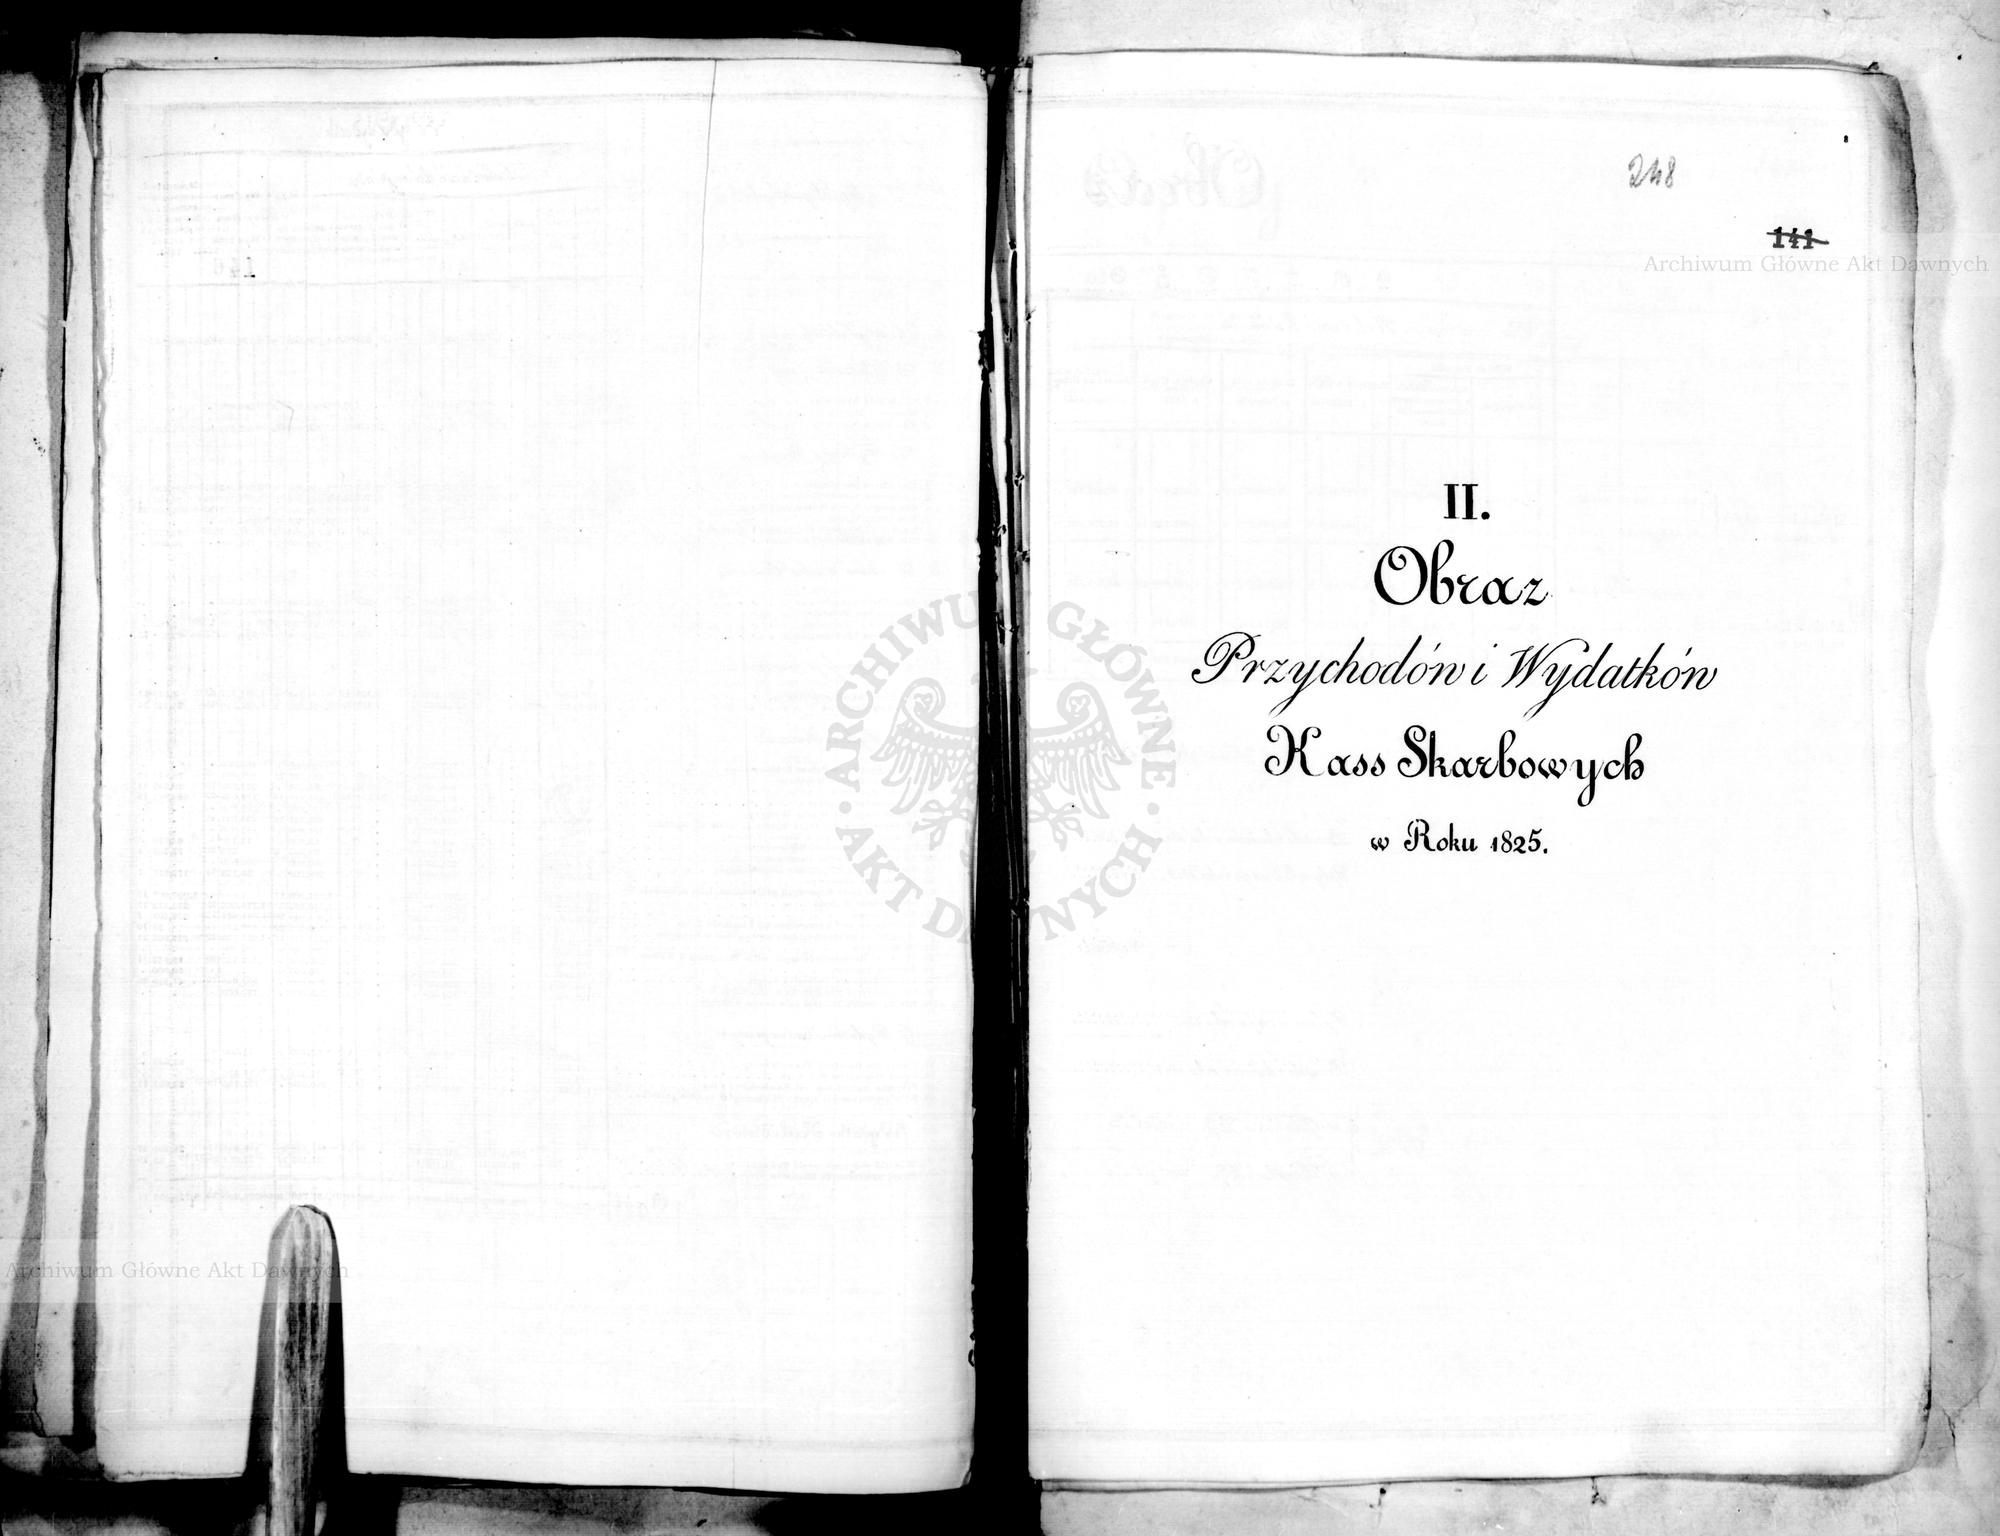 248
141
Archiwum Główne Akt Dawnych
II.
Obraz
Przychodów i Wydatków
Kass Skarbowych
w Roku 1825.
ARCHIWUM GŁÓWNE
AKT DAWNYCH
Archiwum Główne Akt Dawnych